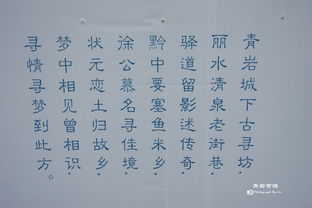 青岩城下古寻坊·
丽水清泉老街巷·
驿道留影述传奇·
黔中要塞鱼米乡·
徐公慕名寻佳境·
状元恋土归故乡·
梦中相见曾相识·
寻情寻梦到此方。
青岩古镇